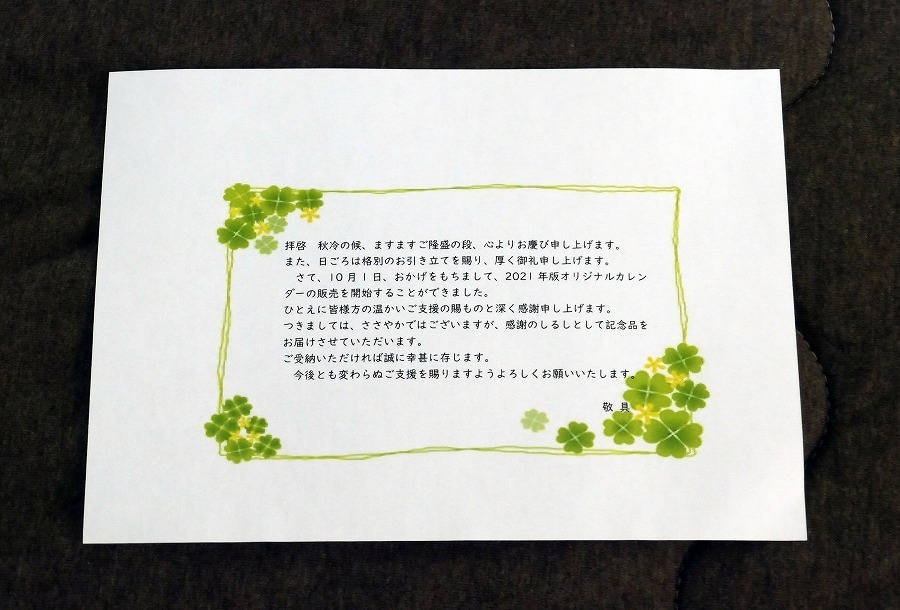 拝啓　秋冷の候、ますますご隆盛の段、心よりお慶び申し上げます。
また、日ごろは格別のお引き立てを賜り、厚く御礼申し上げます。
　さて、10月1日、おかげをもちまして、2021年版オリジナルカレン
ダーの販売を開始することができました。
ひとえに皆様方の温かいご支援の賜ものと深く感謝申し上げます。
つきましては、ささやかではございますが、感謝のしるしとして記念品を
お届けさせていただいます。
ご受納いただければ誠に幸甚に存じます。
　今後とも変わらぬご支援を賜りますようよろしくお願いいたします。
敬 具